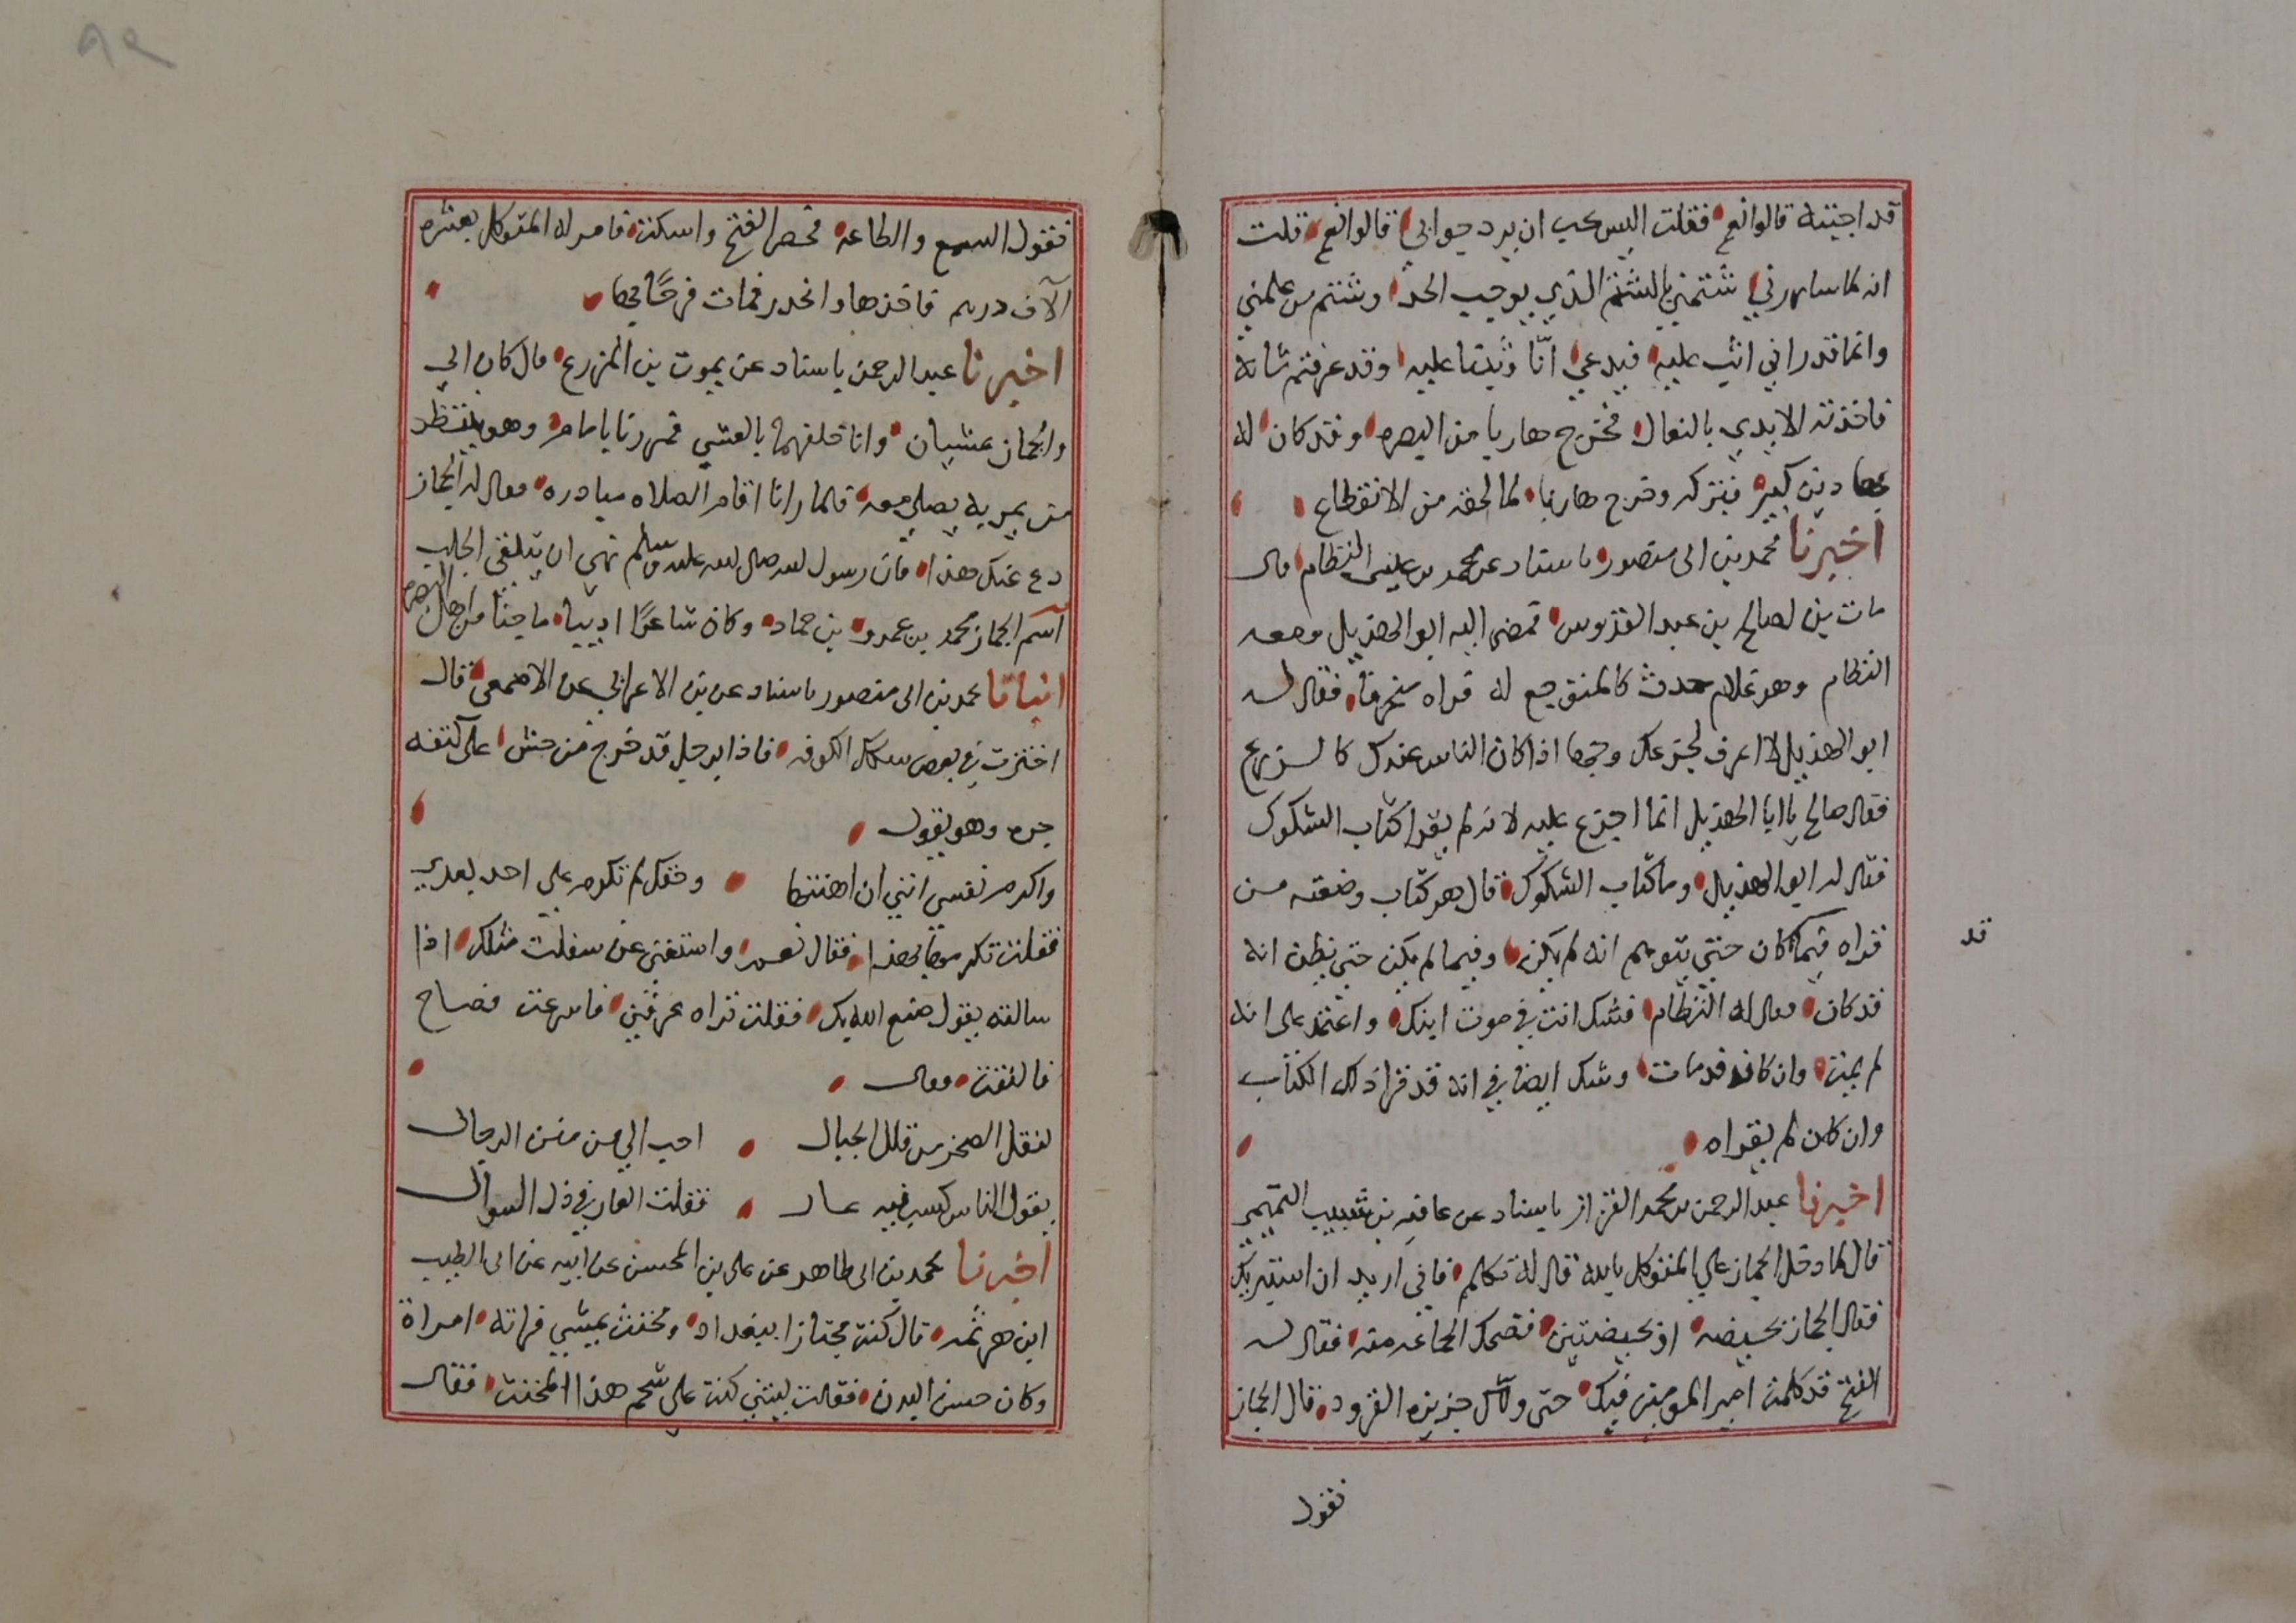 قد اجبته قالوا نعم فقلت اليس يجب ان يرد جوابي قالوا نعم قلت
انه لما سارني شتمني بالشتم الذي يوجب الحد وشتم من علمني
وانما قدر اني اثب عليه فيدعي انا وثبنا عليه وقد عرفتم شانه
فاخذته الايدي بالنعال فخرج هاربا من البصره وقد كان له
بها دين كبير فتركه وخرج هاربا لما لحقه من الانقطاع
اخبرنا محمد بن ابى منصور باسناد عن محمد بن عيسى النظام قال
مات بن لصالح بن عبد القدوس فمضى اليه ابو الهذيل ومعه
النظام وهو غلام حدث كالمتوجع له فراه منحرقا فقال له
ابو الهذيل لا اعرف لجزعك وجها اذا كان الناس عندك كالزرع
فقال صالح يا ابا الهذيل انما اجزع عليه لانه لم يقرا كتاب الشكوك
فقال له ابو الهذيل وما كتاب الشكوك قال هو كتاب وضعته من
قراه فيما كان حتي يتوهم انه لم يكن وفيما لم يكن حتي يظن انه
قد
قد كان فقال له النظام فشك انت في موت ابنك واعتمد على انه
لم يمت وان كان قد مات وشك ايضا في انه قد قرا ذلك الكتاب
وان كان لم يقراه
اخبرنا عبد الرحمن بن محمد القزاز باسناد عن عافيه بن شبيب التميمي
قال لما دخل الجماز علي المتوكل بالله قال له تكلم فاني اريد ان استبريك
فقال الجماز بحيضه او بحيضتين فضحك الجماعه منه فقال له
الفتح قد كلمت امير المومنين فيك حتى ولاك جزيره القرود قال الجماز
نقول
فقول السمع والطاعه فحصر الفتح واسكته فامر له المتوكل بعشره
الآف درهم فاخذها وانحدر فمات فرحًا بها
اخبرنا عبد الرحمن باسناد عن يموت بن المزرع قال كان ابي
والجماز يمشيان وانا خلفهما بالعشي فمررنا بامام وهو ينتظر
من يمر به يصلي معه فلما رانا اقام الصلاه مبادره فقال له الجماز
دع عنك هذا فان رسول الله صلى الله عليه وسلم نهى ان يتلقى الجلب
آسم الجماز محمد بن عمرو بن حماد وكان شاعرًا اديبا ماجنا من اهل البصره
انبانا محمد بن ابى منصور باسناد عن بن الاعرابي عن الاصمعي قال
اجتزت في بعض سكك الكوفه فاذا برجل قد خرج من حش على كتفه
جره وهو يقول
واكرم نفسي انني ان اهنتها وحقك لم تكرم علي احد بعدي
فقلت تكرمها بهذا فقال نعم واستغني عن سفلت مثلك اذا
سالته يقول صنع الله بك فقلت تراه عرفني فاسرعت فصاح
فالتفت فقال
لنقل الصخر من قلل الجبال احب الي من منن الرجال
يقول الناس كسب فيه عار فقلت العار في ذل السوال
اخبرنا محمد بن ابى طاهر عن على بن المحسن عن ابيه عن ابى الطيب
ابن هرثمه قال كنت مجتازا ببغداد ومخنث يمشي فراته امراة
وكان حسن البدن فقالت ليتني كنت علي شحم هذا المخنث فقال